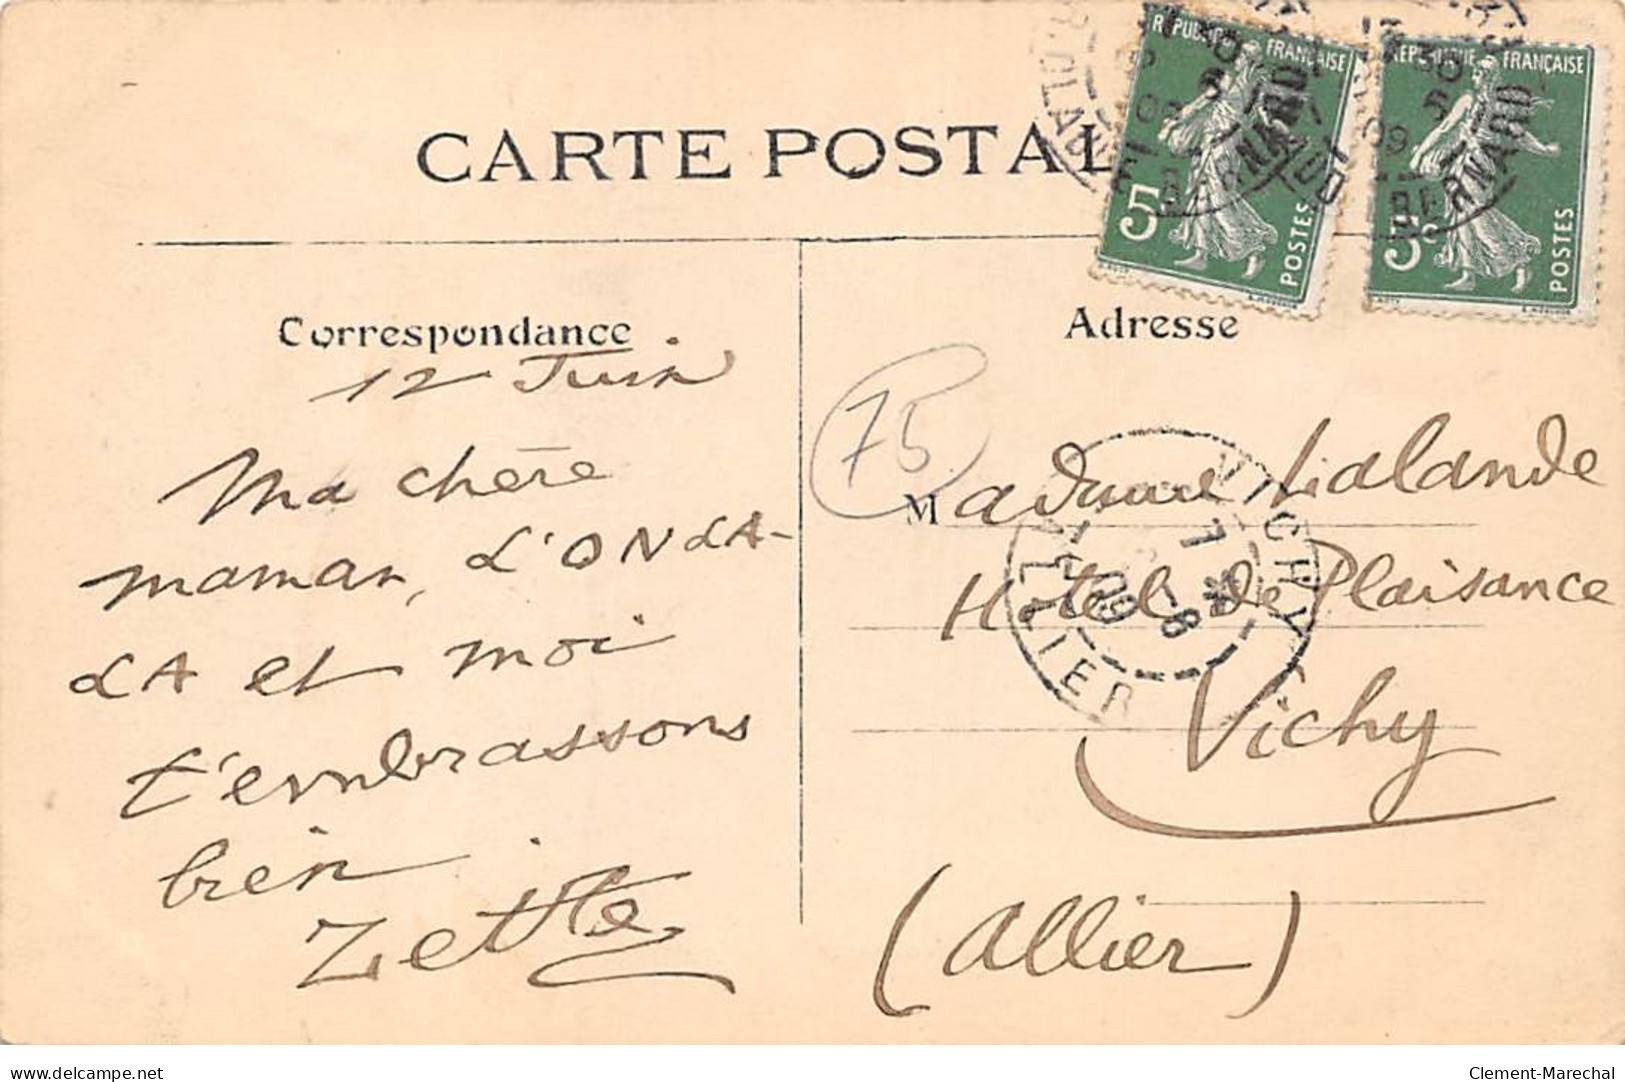 CARTE POSTALE
REPUBLIQUE FRANÇAISE
5c
POSTES
REPUBLIQUE FRANÇAISE
5c
POSTES
BERNARD
BERNARD
09
Correspondance
12 Juin
Ma chère
maman, L'ONDLA-
LA et moi
t'embrassons
bien
Zette
Adresse
75
Madame Lalande
Hôtel de Plaisance
Vichy
(Allier)
VICHY
7
8-6
09
ALLIER
delcampe.net
Clement-Marechal